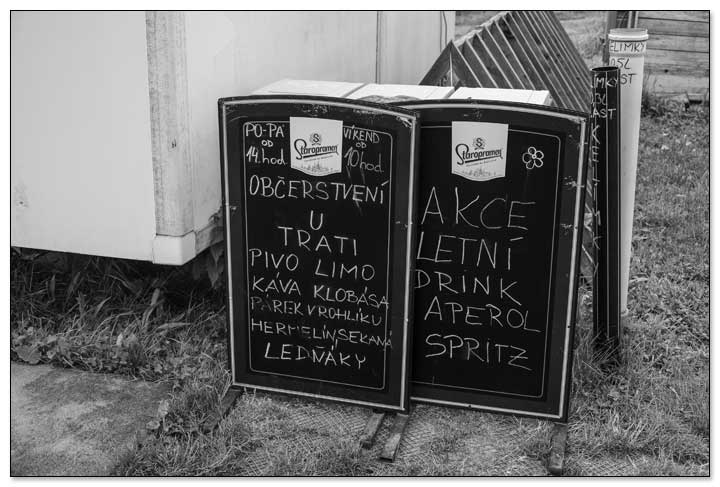 PO-PÁ
OD
14.hod.
Staropramen
VÍKEND
OD
10hod.
OBČERSTVENÍ
U
TRATI
PIVO LIMO
KÁVA KLOBÁSA
PÁREK V ROHLÍKU
HERMELÍN, SEKANÁ
LEDŇÁKY
Staropramen
AKCE
LETNÍ
DRINK
APEROL
SPRITZ